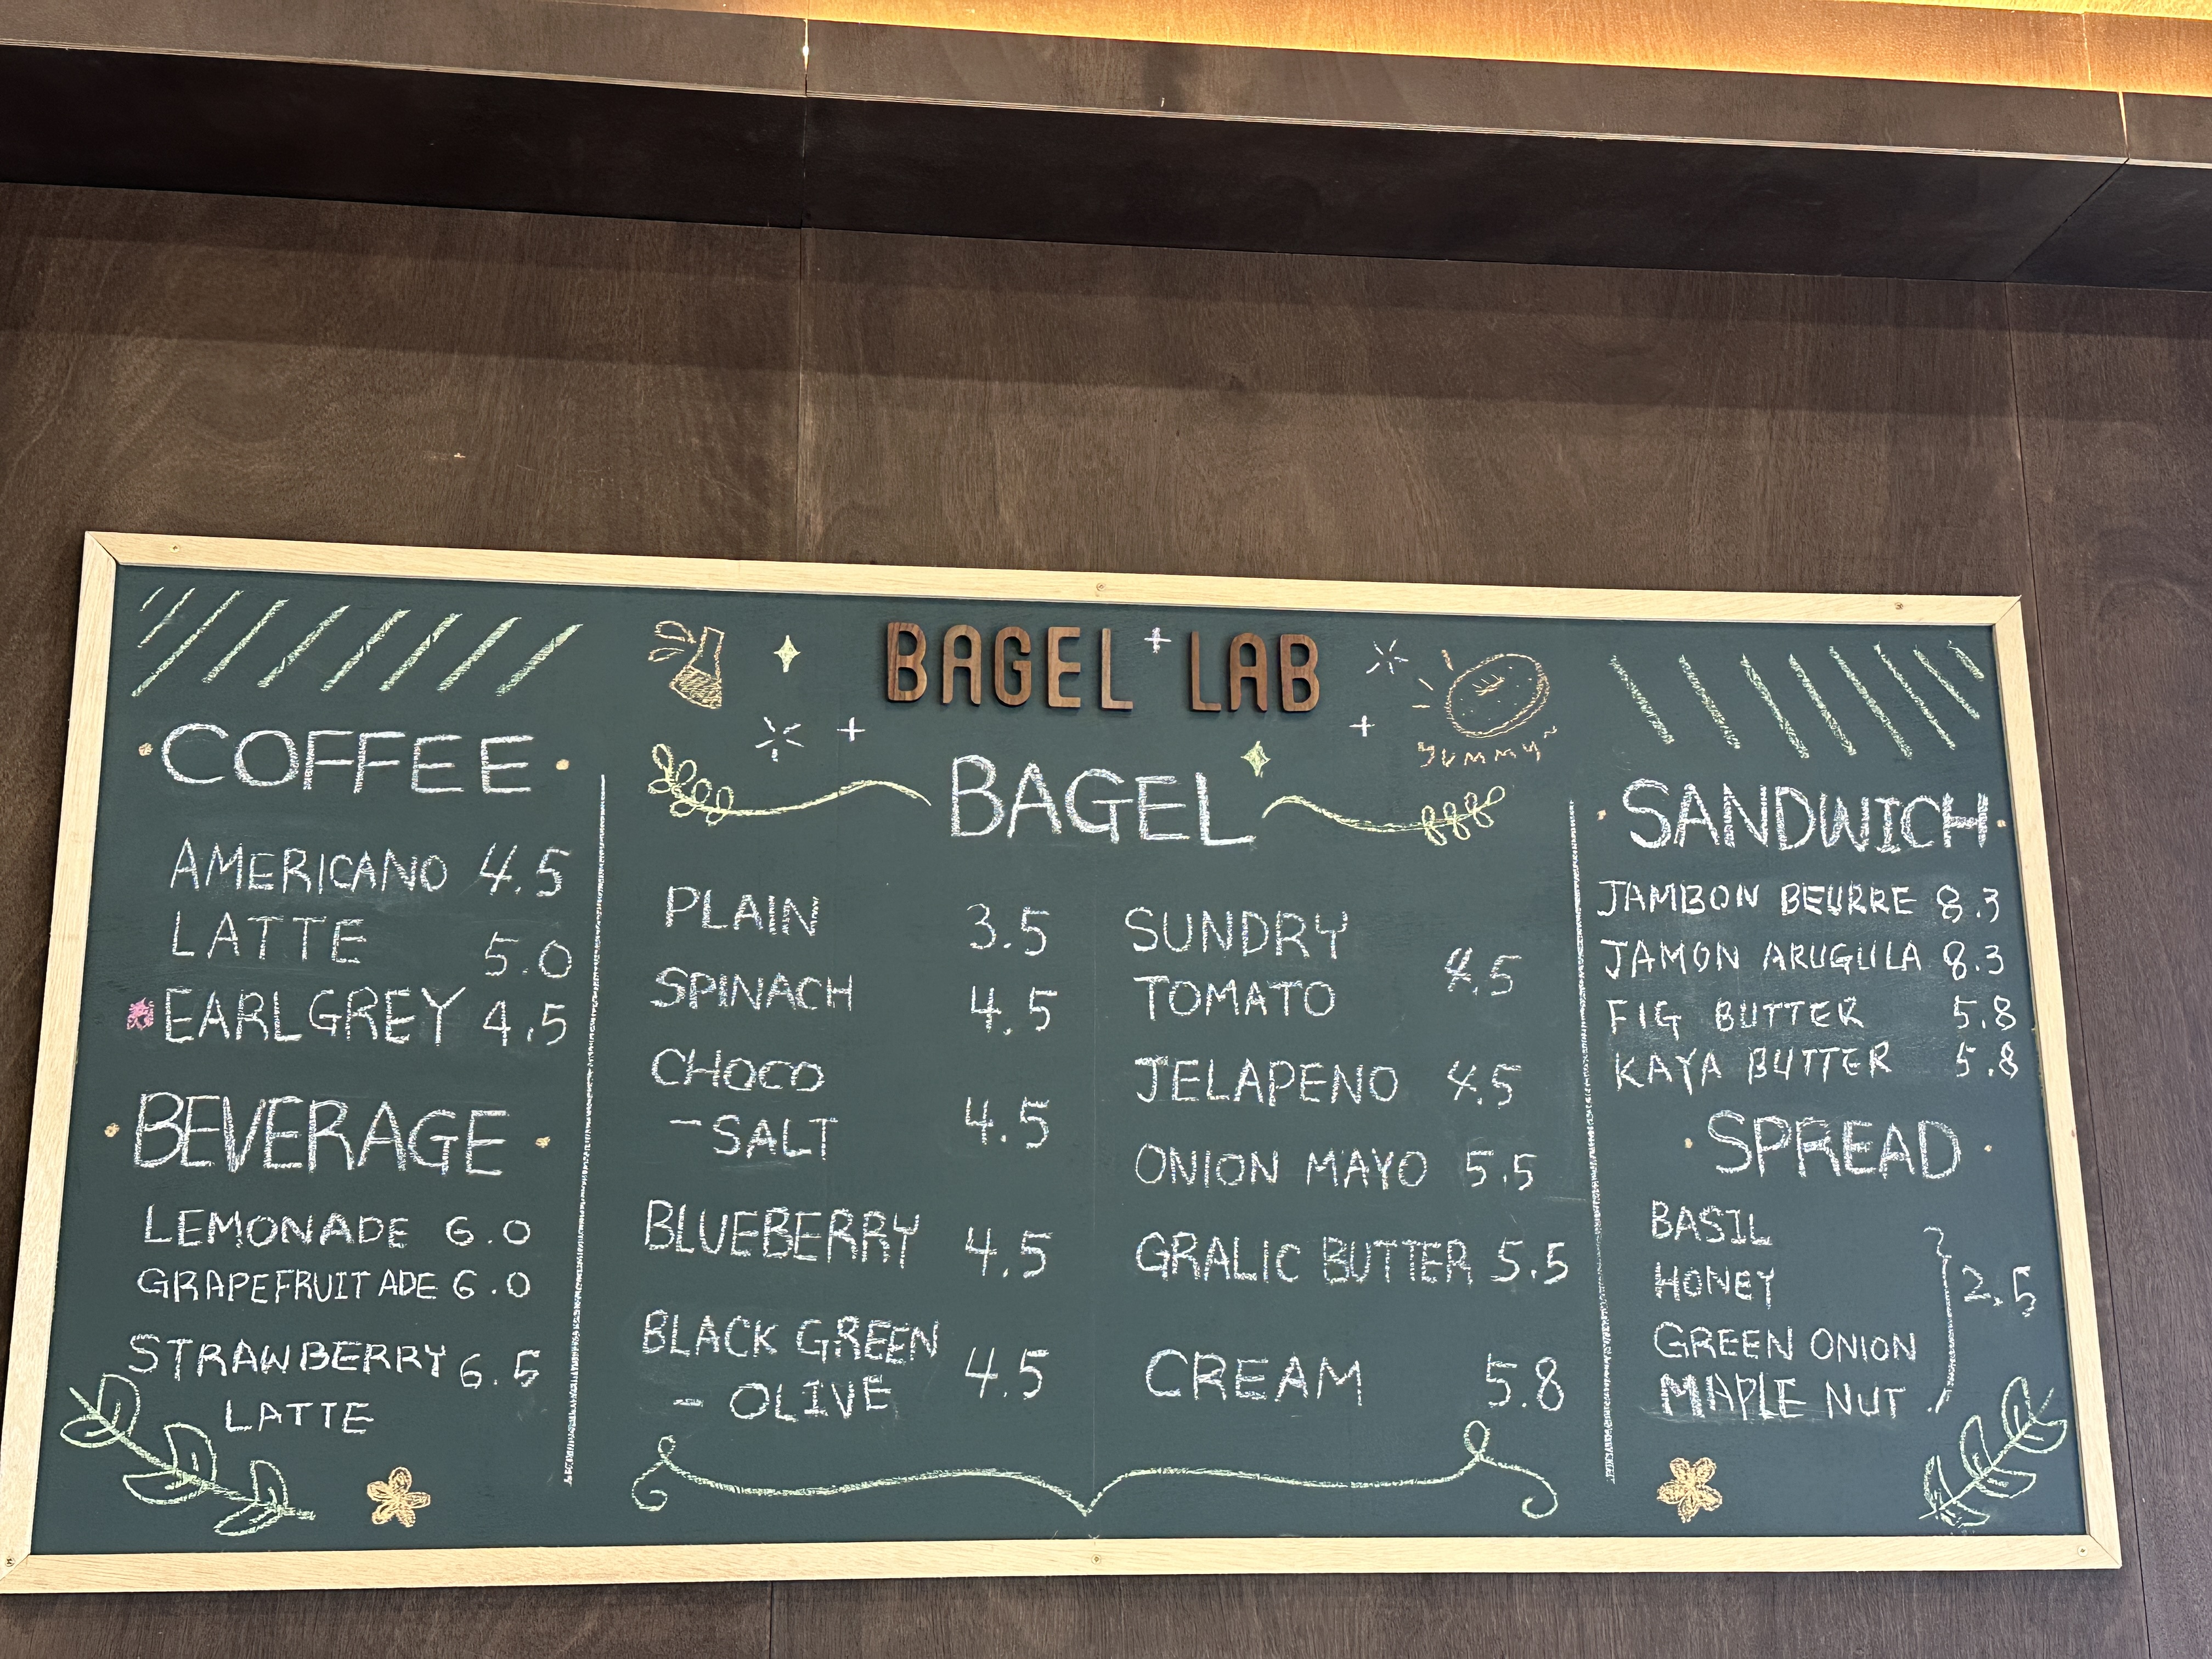 BAGEL LAB
YUMMY~
COFFEE
AMERICANO 4.5
LATTE 5.0
EARLGREY 4.5
BEVERAGE
LEMONADE 6.0
GRAPEFRUIT ADE 6.0
STRAWBERRY 6.5
LATTE
BAGEL
PLAIN 3.5
SPINACH 4.5
CHOCO
-SALT 4.5
BLUEBERRY 4.5
BLACK GREEN
- OLIVE 4.5
SUNDRY
TOMATO 4.5
JELAPENO 4.5
ONION MAYO 5.5
GRALIC BUTTER 5.5
CREAM 5.8
SANDWICH
JAMBON BEURRE 8.3
JAMON ARUGULA 8.3
FIG BUTTER 5.8
KAYA BUTTER 5.8
SPREAD
BASIL
HONEY 2.5
GREEN ONION
MAPLE NUT